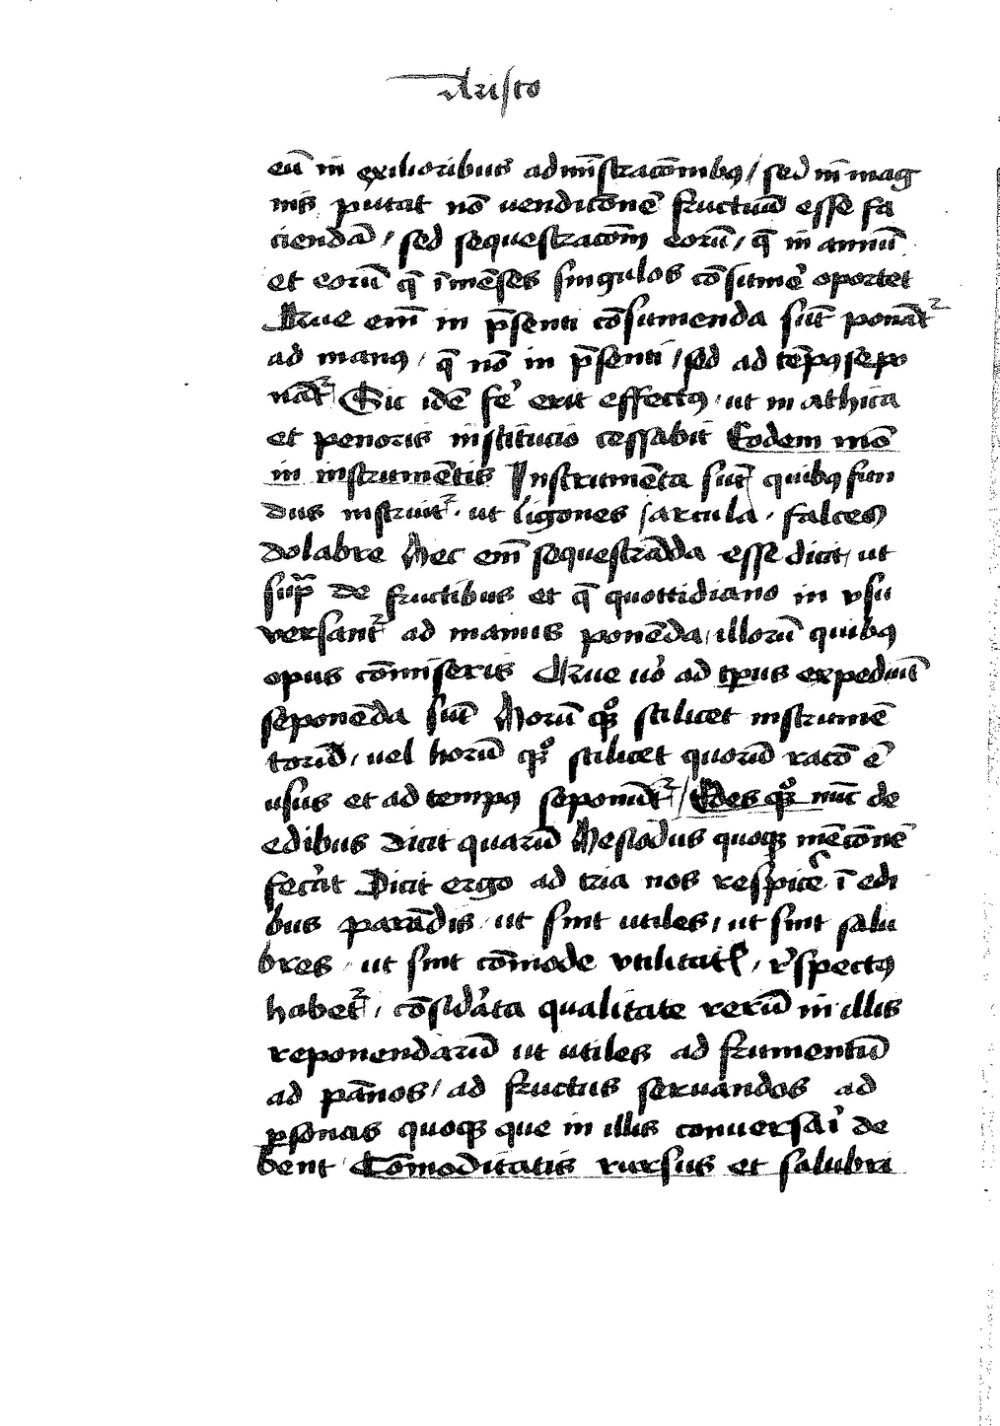 Aristo
eū in exilioribus admīstracōnibꝯ / sed in mag
nis putat nō vendicōnē fructuū esse fa
ciendā / sed sequestracōm eorū / q̄ in annū
et eorū q̄ ī mēses singulos cōsume᷑ oportet
Que em̄ in p̄senti cōsumenda sūt ponāt᷑
ad manꝯ / q̄ nō in p̄senti / sed ad tēpꝯ sepo
nāt᷑ Sic idē fe᷑ erit effectꝯ / ut in athica
et penoris institucio cessabit Eodem mō
in instrumētis Instrumēta sūt quibꝯ fun
dus instruit᷑ . ut ligones sarcula . falces
dolabre Hec em̄ sequestrāda esse dicit / ut
sup̄ de fructibus et q̄ quottidiano in vsu
versant᷑ ad manus ponēda / illorū quibꝯ
opus cōmiseris Que uo᷑ ad tꝑus expediūt
seponēda sūt Horū qͦꝫ scilicet instrumē
torū / vel horū qͦꝫ scilicet quorū racō ē
usus et ad tempꝯ seponūt᷑ / Edes qͦꝫ nūc de
edibus dicit quarū Hesiodus quoqꝫ mēcōnē
fecit Dicit ergo ad tria nos respice᷑ ī edi
bus parādis ut sint utiles / ut sint salu
bres / ut sint cōmode vtilitatꝭ / r᷑spectꝯ
habet᷑ / cōsid᷑ata qualitate rerū in illis
reponendarū ut utiles ad frumentū
ad pānos / ad fructus seruandos ad
ꝑsonas quoqꝫ que in illis conuersai᷑ de
bent Cōmoditatis rursus et salubri